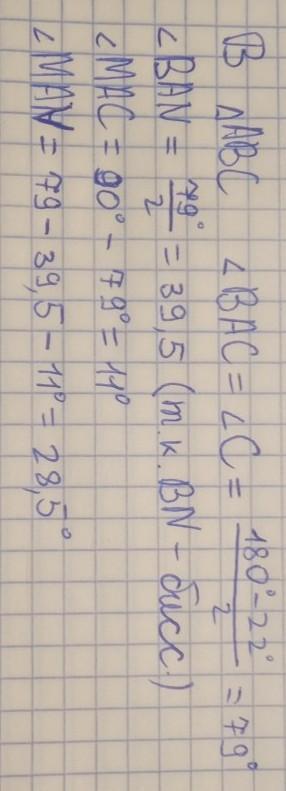 В △ABC ∠BAC = ∠C = (180° - 22°)/2 = 79°
∠BAN = 79°/2 = 39,5 (т.к. BN - бисс.)
∠MAC = 90° - 79° = 11°
∠MAN = 79 - 39,5 - 11° = 28,5°